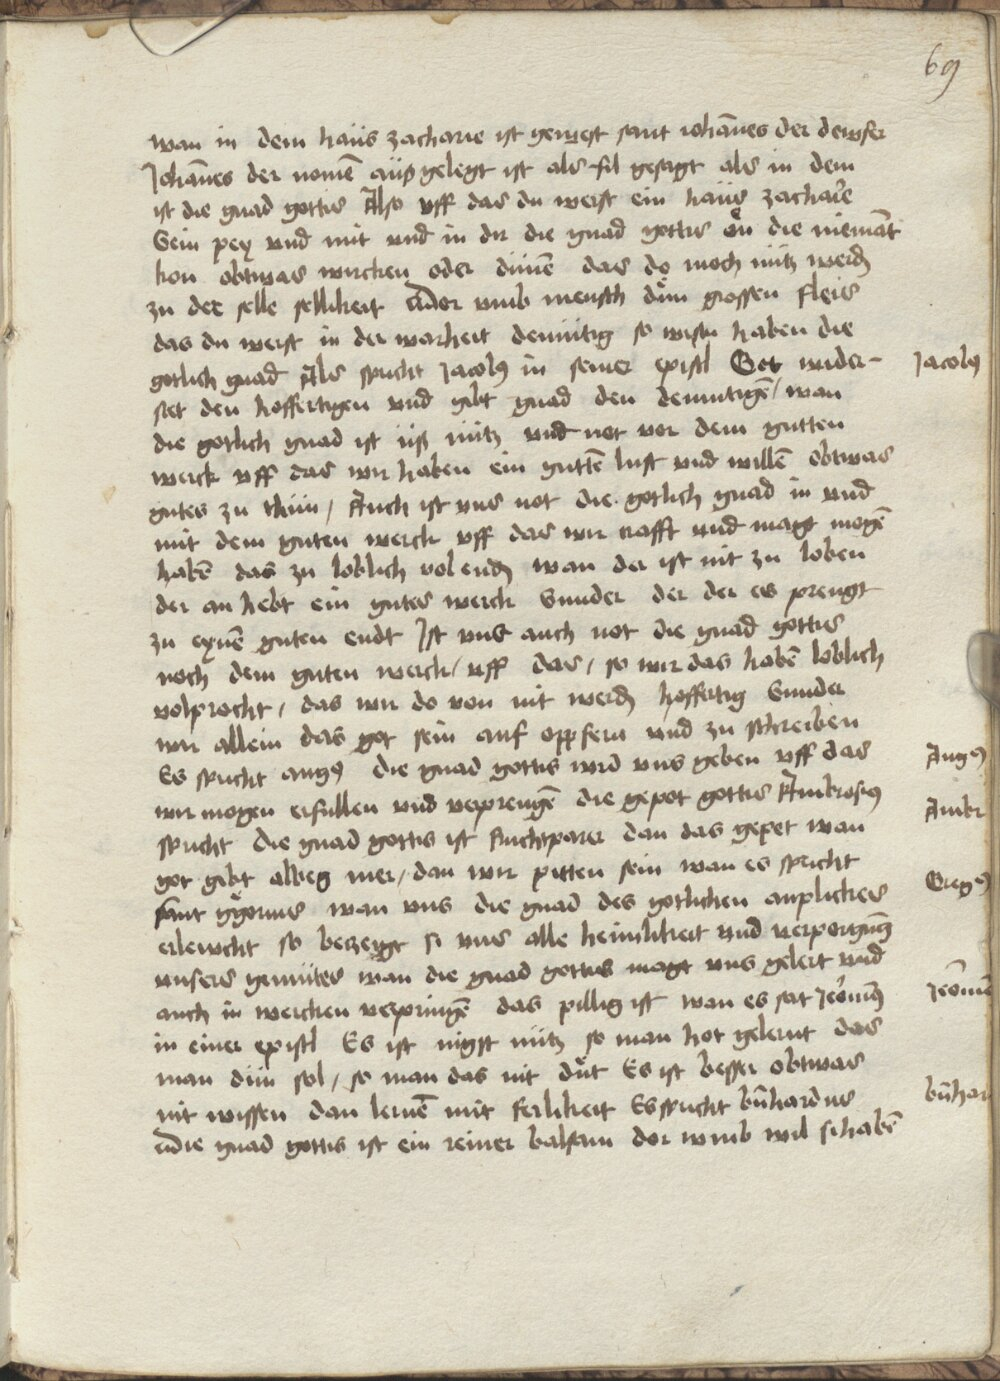 69
wan in dem haüs zacharie ist gewest sant iohānes der dewfer
Johānes der nomē aüsgelegt ist als fil gesagt als in dem
ist die gnad gottis Also vff das du werst ein haüs zacharie
Sein pey vnd mit vnd in dir die gnad gottis ön die niemāt
kon obtwas wircken oder dünē das do noch nütz werd
zu der selle sellikeit dor vmb mensch düm grossen fleis
das du werst in der warheit demütig so wirstu haben die
gotlich gnad Als spricht Jacobus in seiner epistl Got wider-
Jacobus
stet den hoffertigen vnd gibt gnad den demutigē / wan
die gotlich gnad ist üß nütz vnd not vor dem gutten
werck vff das wir haben ein guttē lust vnd willē obtwas
gutes zu thün / Auch ist vns not die gotlich gnad in vnd
mit dem guten werck vff das wir crafft vnd magt mogē
habē das zu loblich volenden wan der ist nit zu loben
der an hebt ein gutes werck Sunder der der es prengt
zu eynē guten endt Ist vns auch not die gnad gottis
noch dem guten werck / vff das / so wir das habē loblich
volprocht / das wir do von nit werden hoffertig Sunder
wir allein das got sein auf opfern vnd zu schreiben
Es spricht augus die gnad gottis wird vns geben vff das
Augus
wir mogen erfullen vnd verprengē die gepot gottis Ambrosius
Ambr
spricht die gnad gottis ist fruchtparer dan das gepet wan
got gibt alweg mer / dan wir pitten sein wan es spricht
Gregus
sant ggorius wan vns die gnad des gotlichen anplickes
erlewcht so bezeygt si vns alle heimlikeit vnd verporgung
vnsers gemütes wan die gnad gottis magt vns gelert vnd
auch in wercken verpringē das pillig ist wan es sat Jeronimus
Jeronimus
in einer epistl Es ist nigst nütz so man hot gelernt das
man dün sol / so man das nit düt Es ist besser obtwas
nit wissen dan lernē mit ferlikeit Es spricht bn̄hardus
bn̄har
die gnad gottis ist ein reiner balsam dor vmb wil si habē